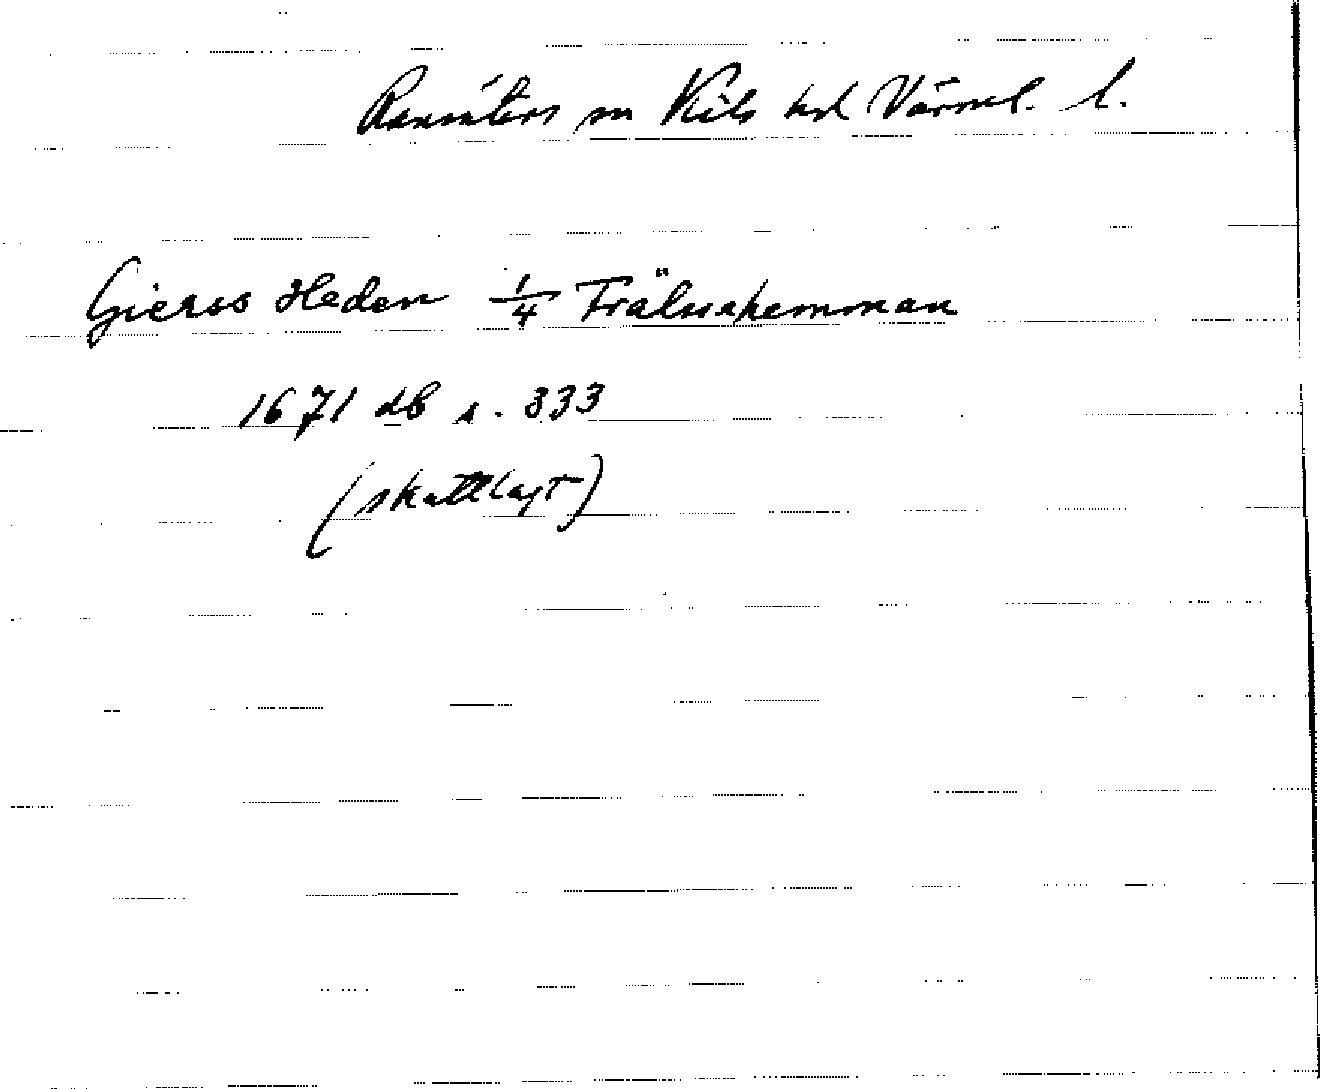 Ransäters sn Kils hd Värml. l.
Gierss Heden 1/4 Frälsehemman
1671 db s. 333
(skattlagt)